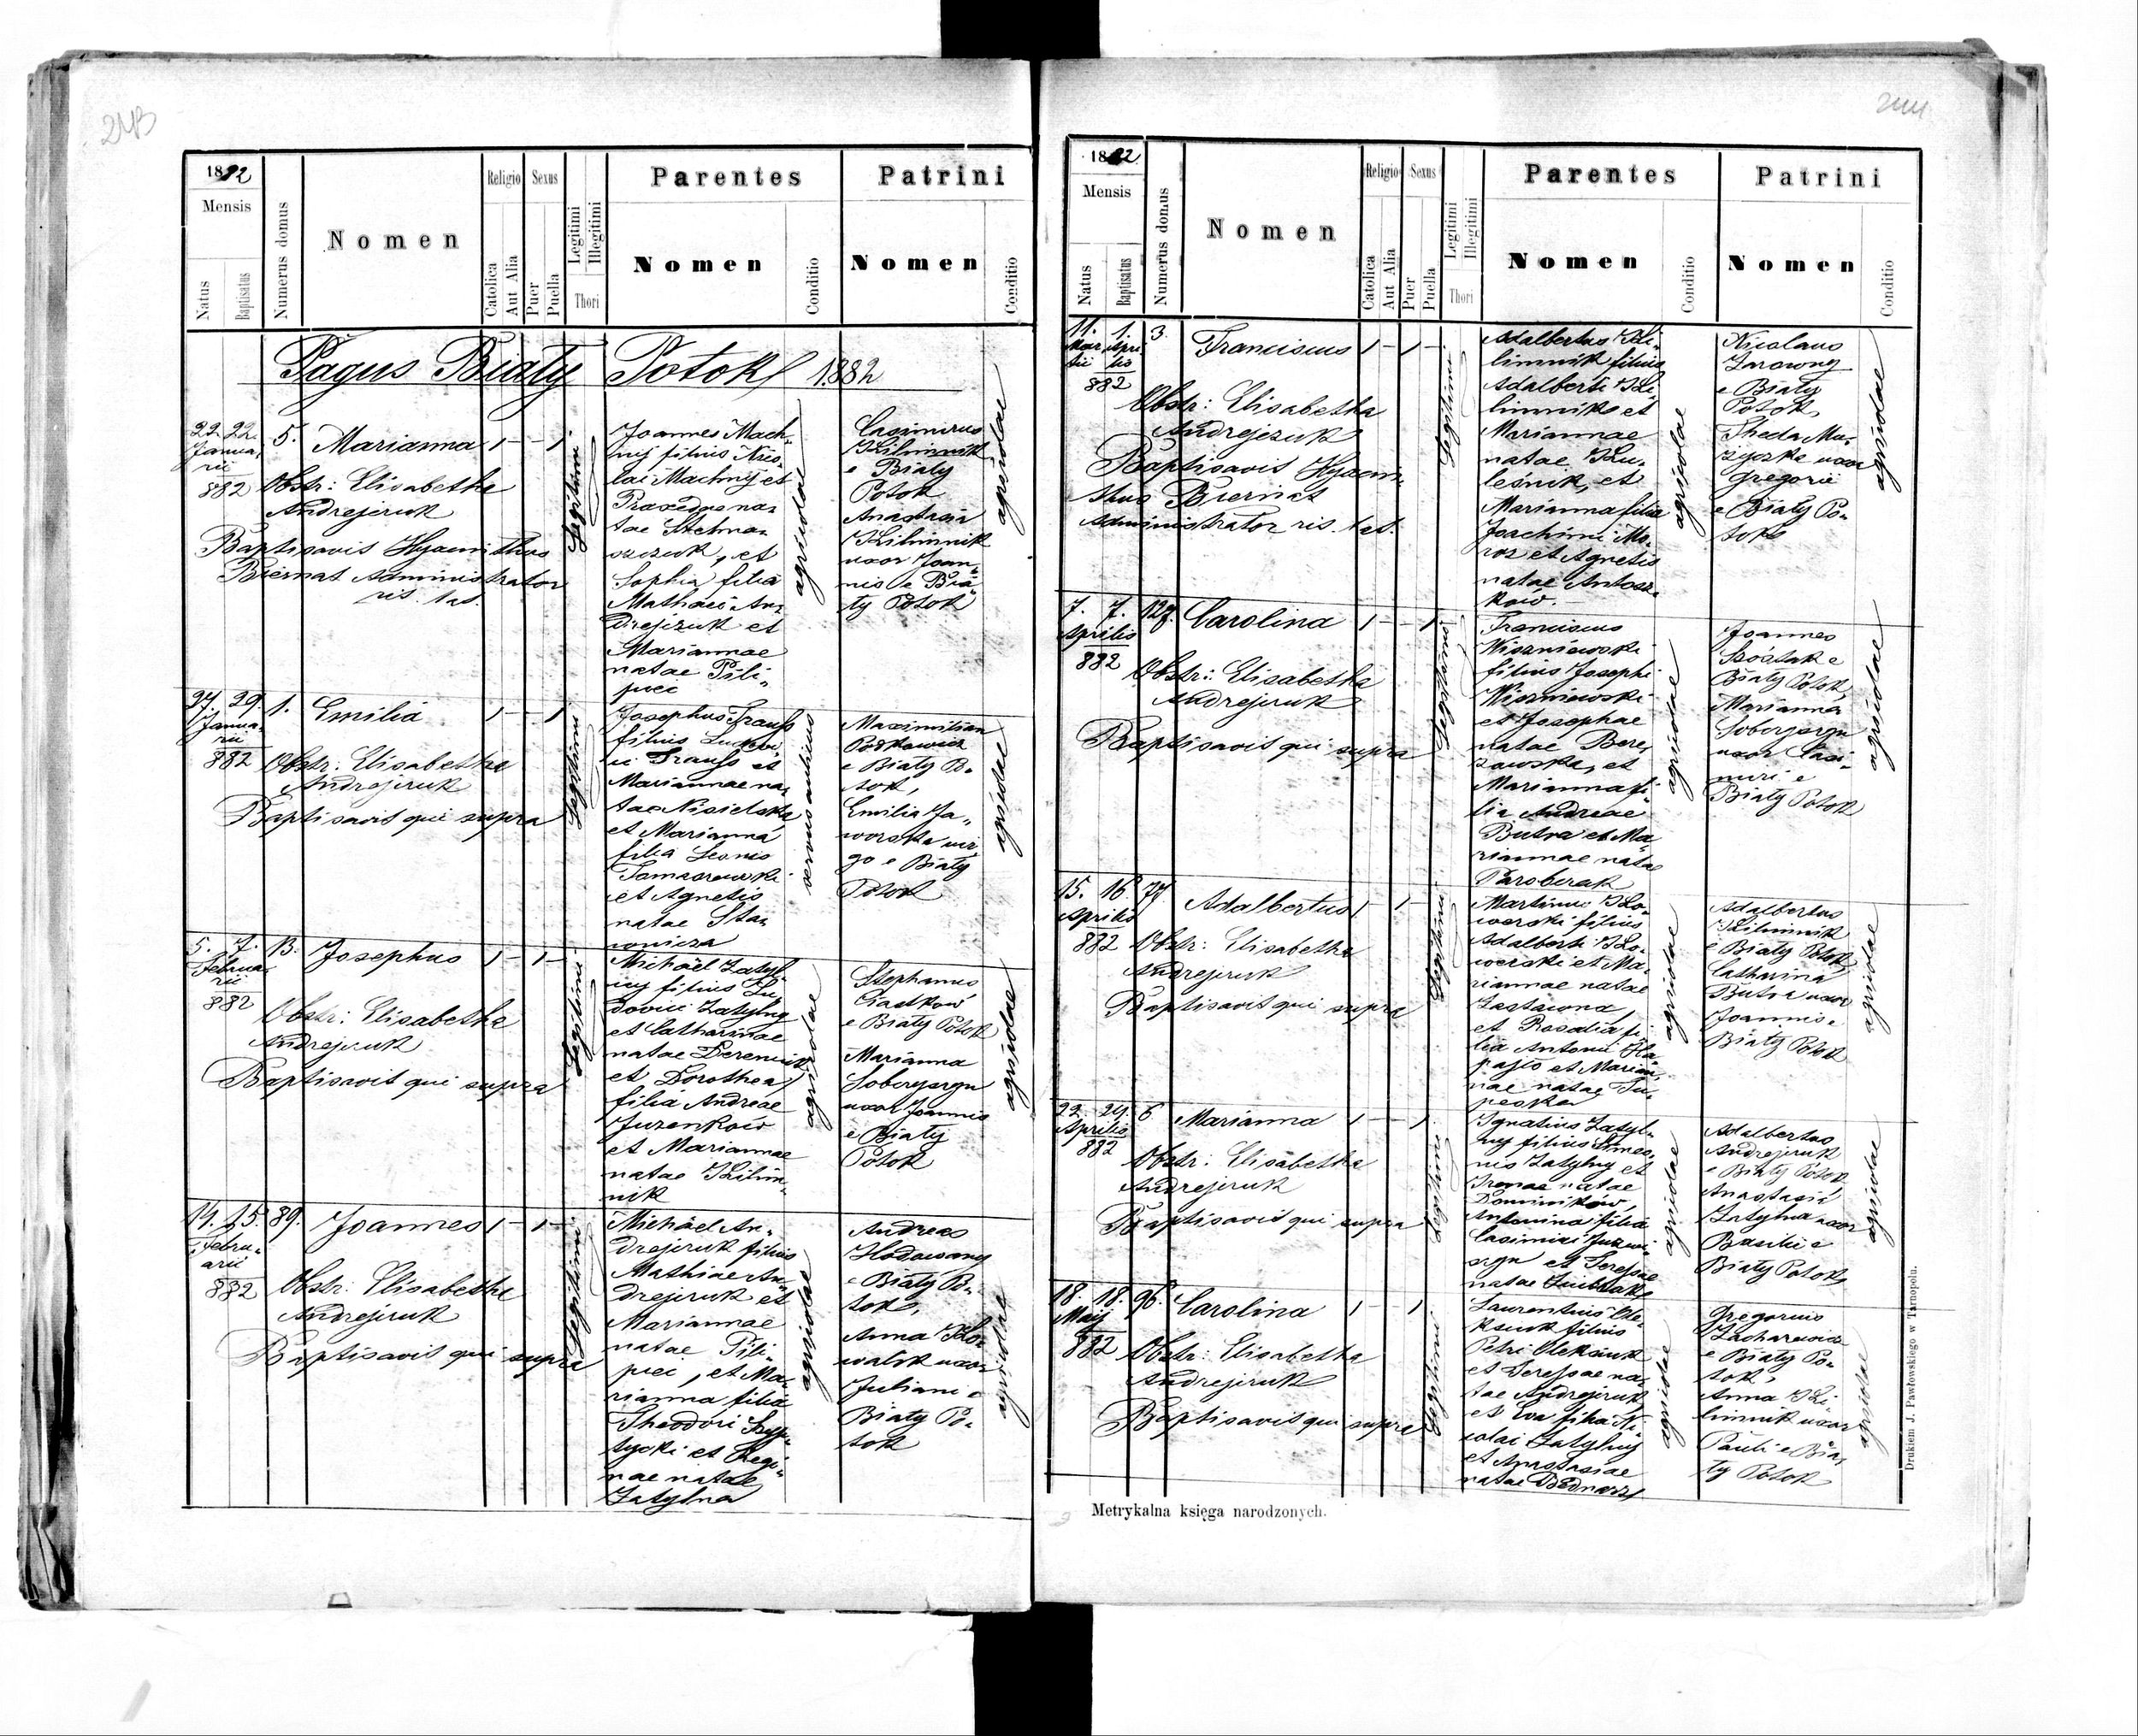 243
1882
Mensis
Natus
Baptisatus
Numerus domus
Nomen
Religio
Catolica
Aut Alia
Sexus
Puer
Puella
Legitimi
Illegitimi
Thori
Parentes
Nomen
Conditio
Patrini
Nomen
Conditio
Pagus Biały Potok 1882
22. 22.
Janua-
rii
882
5.
Marianna
1 — — 1
Obstr: Elisabetha
Andrejczuk
Baptisavit Hyacinthus
Biernat Administrator
rit. lat.
Legitimi
Joannes Mach-
nij filius Nico-
lai Machnij et
Praxedae na-
tae Stelma-
szczuk, et
Sophia filia
Mathaei An-
drejczuk et
Mariannae
natae Pili-
piec
agricolae
Casimirus
Klimnik
e Biały
Potok
Anastasia
Klimnik
uxor Joan-
nis e Bia-
ły Potok
agricolae
27. 29.
Janua-
rii
882
1.
Emilia
1 — — 1
Obstr: Elisabetha
Andrejczuk
Baptisavit qui supra
Legitimi
Josephus
filius Ludovi-
ci et
Mariannae na-
tae
et Marianna
filia Leonis
Tomaszewski
et Agnetis
natae
Maximilian
e Biały Po-
tok,
Emilia Ja-
worska vir-
go e Biały
Potok
agricolae
5. 7.
Februa-
rii
882
13.
Josephus
1 — 1 —
Obstr: Elisabetha
Andrejczuk
Baptisavit qui supra
Legitimi
Michael Zatyl-
ny filius Lu-
dovici Zatylny
et Catharinae
natae Derenczuk
et Dorothea
filia Andreae
Juzenkow
et Mariannae
natae Klim-
nik
agricolae
Stephanus
Ciastkow
e Biały Potok
Marianna
Soberzszyn
uxor Joannis
e Biały
Potok
agricolae
14. 15.
Febru-
arii
882
89.
Joannes
1 — 1 —
Obstr: Elisabetha
Andrejczuk
Baptisavit qui supra
Legitimi
Michael An-
drejczuk filius
Mathiae An-
drejczuk et
Mariannae
natae Pili-
piec, et Ma-
rianna filia
Theodori
et Regi-
nae natae
Zatylna
agricolae
Andreas
Hodowany
e Biały Po-
tok,
Anna Ko-
walik uxor
Juliani e
Biały Po-
tok
agricolae
244
1882
Mensis
Natus
Baptisatus
Numerus domus
Nomen
Religio
Catolica
Aut Alia
Sexus
Puer
Puella
Legitimi
Illegitimi
Thori
Parentes
Nomen
Conditio
Patrini
Nomen
Conditio
11. 1.
Mar- Apri-
tii lis
882
3.
Franciscus
1 — 1 —
Obstr: Elisabetha
Andrejczuk
Baptisavit Hyacin-
thus Biernat
Administrator rit. lat.
Legitimi
Adalbertus Kli-
limnik filius
Adalberti Kli-
limnik et
Mariannae
natae Ku-
leśnik, et
Marianna filia
Joachimi Mo-
roz et Agnetis
natae Antosz-
kow.
agricolae
Nicolaus
Zarowny
e Biały
Potok
Theda Mu-
zyczka uxor
Gregorii
e Biały Po-
tok
agricolae
7. 7.
Aprilis
882
127.
Carolina
1 — — 1
Obstr: Elisabetha
Andrejczuk
Baptisavit qui supra
Legitimi
Franciscus
Wiszniewski
filius Josephi
Wiszniewski
et Josephae
natae Bere-
zowska, et
Marianna fi-
lia Andreae
Butra et Ma-
riannae natae
Paroberak
agricolae
Joannes
Szostak e
Biały Potok,
Marianna
Soberzszyn
uxor Casi-
miri e
Biały Potok
agricolae
15. 16.
Aprilis
882
77.
Adalbertus
1 — 1 —
Obstr: Elisabetha
Andrejczuk
Baptisavit qui supra
Legitimi
Martinus Ko-
werski filius
Adalberti Ko-
werski et Ma-
riannae natae
Zastawna,
et Rosalia fi-
lia Antonii
et Marian-
nae natae
agricolae
Adalbertus
Klimnik
e Biały Potok,
Catharina
Butra uxor
Joannis e
Biały Potok
agricolae
22. 24.
Aprilis
882
6.
Marianna
1 — — 1
Obstr: Elisabetha
Andrejczuk
Baptisavit qui supra
Legitimi
Ignatius Zatyl-
ny filius Simeo-
nis Zatylny et
Irenae natae
Dominików,
Antonina filia
Casimiri
et Teressae
natae
agricolae
Adalbertus
Andrejczuk
e Biały Potok
Anastasia
Zatylna uxor
Basilii e
Biały Potok
agricolae
18. 18.
Maij
882
96.
Carolina
1 — — 1
Obstr: Elisabetha
Andrejczuk
Baptisavit qui supra
Legitimi
Laurentius Ole-
ksiuk filius
Petri Oleksiuk
et Teressae na-
tae Andrejczuk
et Eva filia Ni-
colai Zatylny
et Anastasiae
natae Bednarz
agricolae
Gregorius
Zacharewicz
e Biały Po-
tok,
Anna Kli-
limnik uxor
Pauli e Bia-
ły Potok
agricolae
Metrykalna księga narodzonych.
Drukiem J. Pawłowskiego w Tarnopolu.